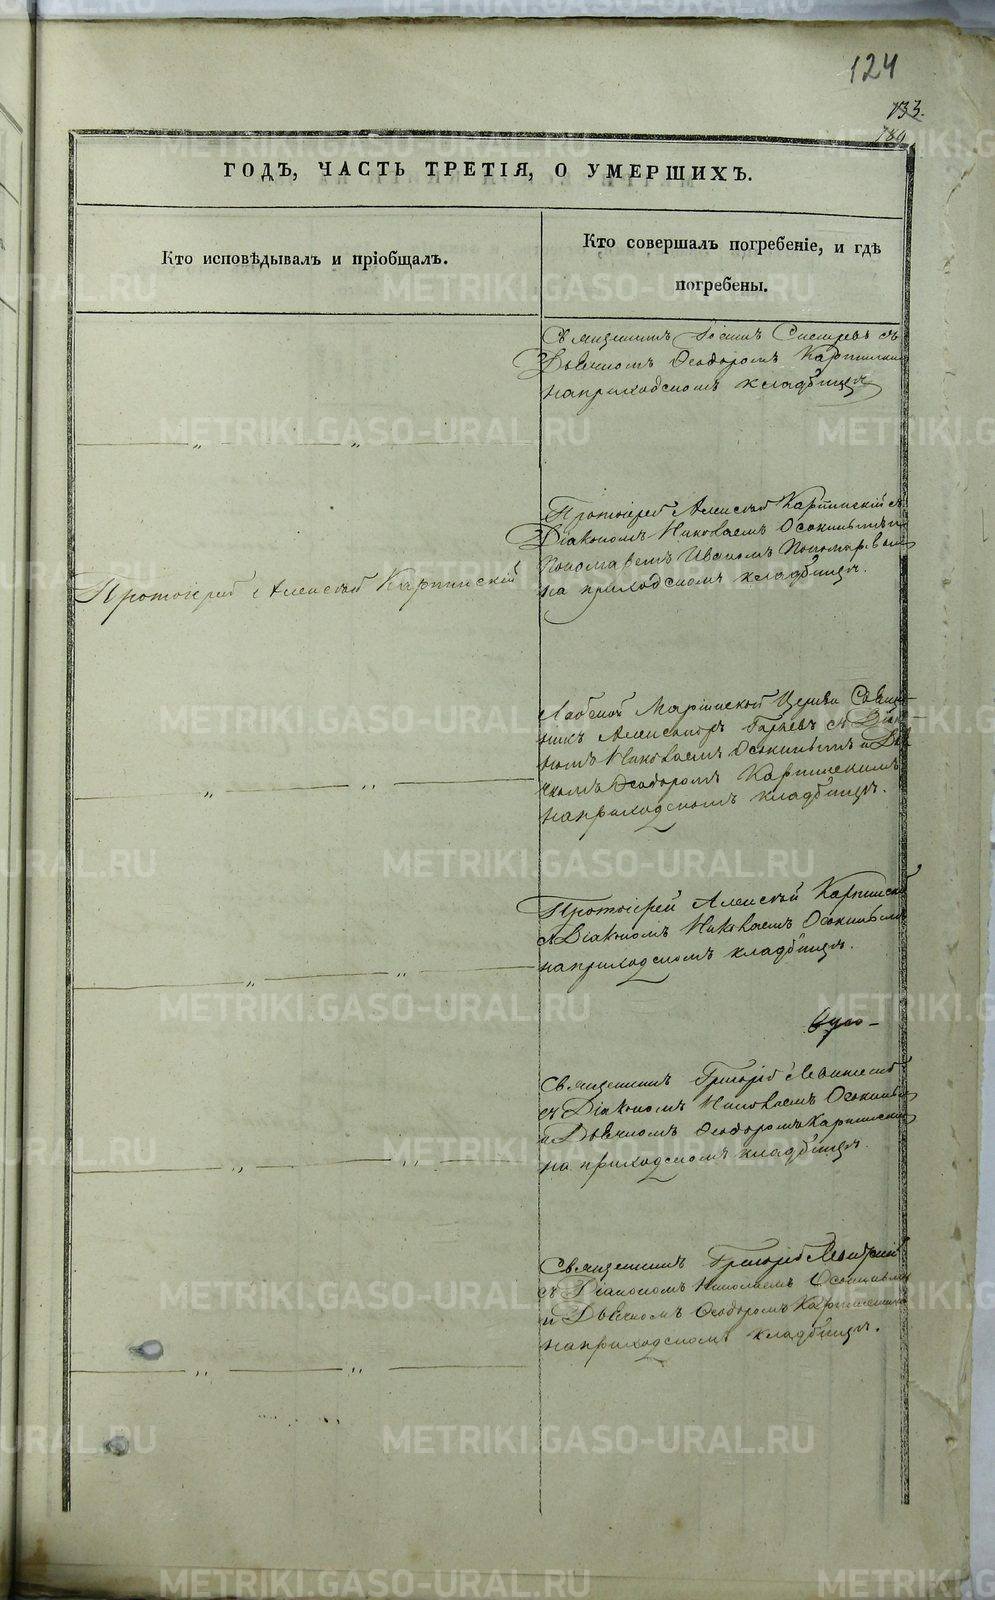 124
133.
189
ГОДЪ, ЧАСТЬ ТРЕТІЯ, О УМЕРШИХЪ.
Кто исповѣдывалъ и пріобщалъ.
Кто совершалъ погребеніе, и гдѣ
погребены.
Священникъ съ
Дьячкомъ Ѳеодоромъ Карпинским
на приходскомъ кладбищѣ
Протоіерей Алексѣй Карпинскій съ
Діакономъ Николаемъ Осокинымъ и
Пономаремъ Иваномъ Пономаревымъ
на приходскомъ кладбищѣ.
Протоіерей Алексѣй Карпинскій
Маріинской Церкви Священ-
никъ Александръ съ Діако-
номъ Николаемъ Осокинымъ и Дья
чкомъ Ѳеодоромъ Карпинскимъ
на приходскомъ кладбищѣ.
Протоіерей Алексѣй Карпинскій
съ Діакономъ Николаемъ Осокинымъ
на приходскомъ кладбищѣ.
Священникъ Григорій Левитскій
съ Діакономъ Николаемъ Осокинымъ
и Дьячкомъ Ѳеодоромъ Карпинским
на приходскомъ кладбищѣ.
Священникъ Григорій Левитскій
съ Діакономъ Николаемъ Осокинымъ
и Дьячкомъ Ѳеодоромъ Карпинскимъ
на приходскомъ кладбищѣ.
METRIKI.GASO-URAL.RU